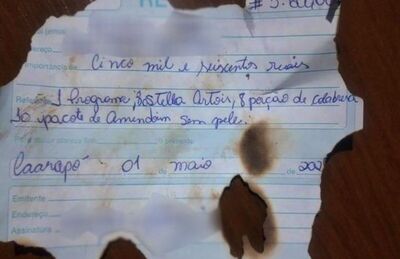 RE
#5.600
emos
Endereço
importância de Cinco mil e seiscentos reais
Refe 1 Programa, 3 Stella Artois, 8 porção de calabresa
10 pacote de Amendoim sem pele.
Caarapó 01 de maio de 202
Emitente
Endereço
Assinatura